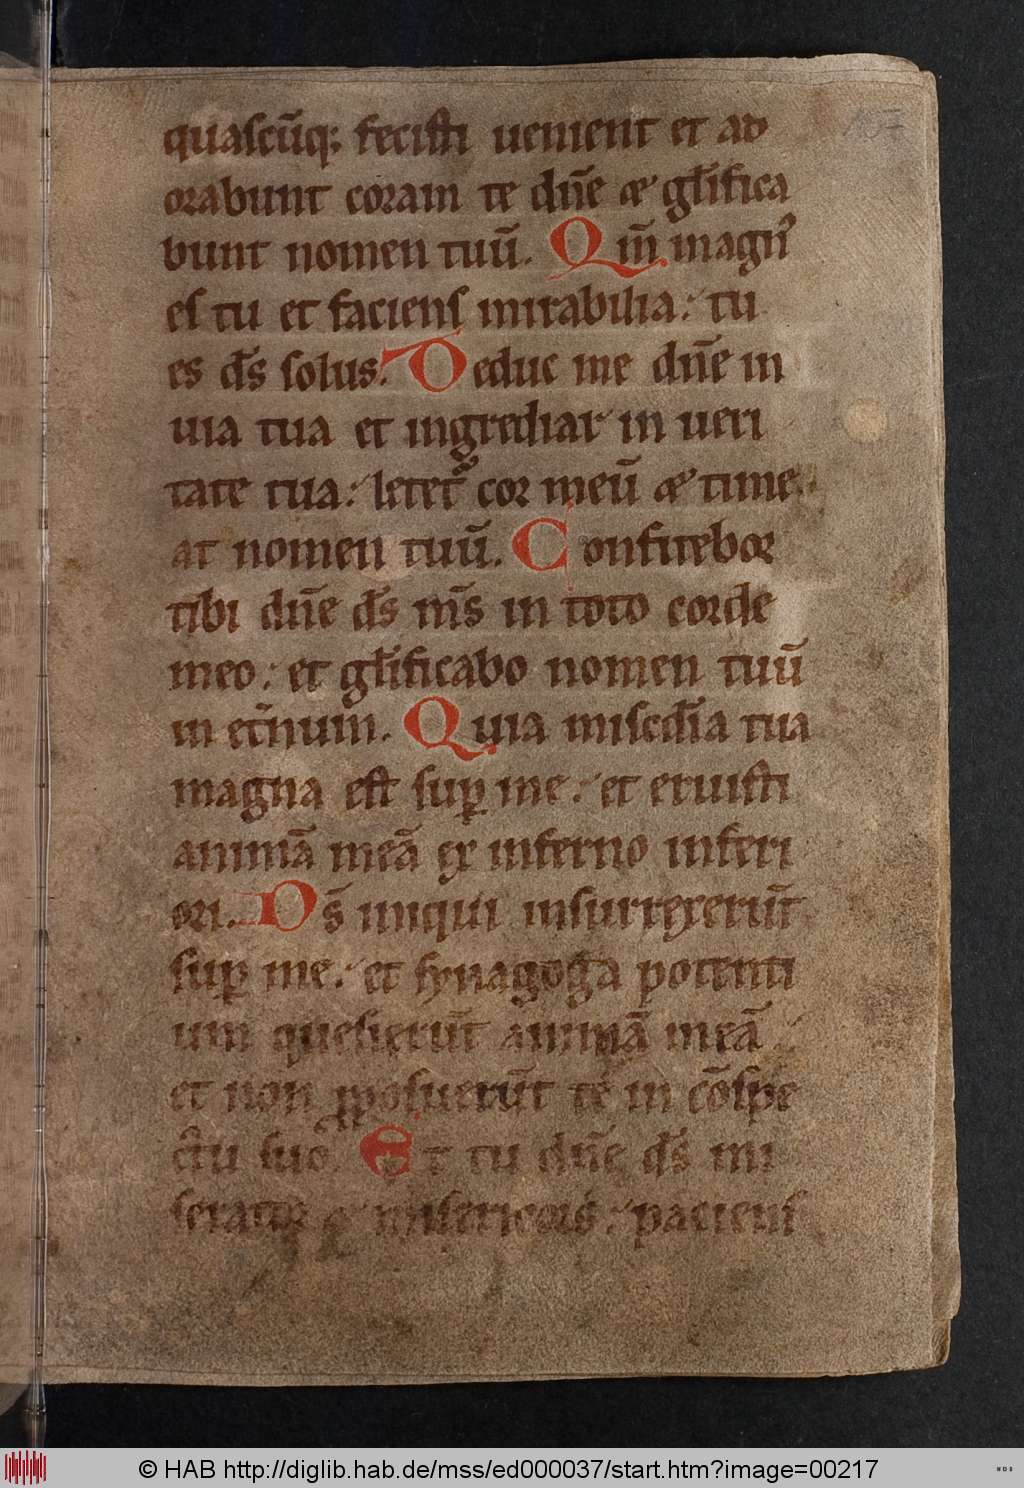 107
quascūq; fecisti uenient et ad
orabunt coram te dn̄e & gl̄ifica
bunt nomen tuū. Qm̄ magn᾽
es tu et faciens mirabilia: tu
es ds̄ solus. Deduc me dn̄e in
uia tua et ingrediar in ueri
tate tua: letet᷑ cor meū & time
at nomen tuū. Confitebor
tibi dn̄e ds̄ ms̄ in toto corde
meo: et gl̄ificabo nomen tuū
in et̄num. Quia misc̄dia tua
magna est sup̱ me: et eruisti
animā meā ex inferno inferi
ori. Ds̄ iniqui insurrexerūt
sup̱ me: et synagoga potenti
um quesierūt animā meā
et non ꝓposuerūt te in cōspe
ctu suo. Et tu dn̄e ds̄ mi
serator & misericors: paciens
© HAB http://diglib.hab.de/mss/ed000037/start.htm?image=00217